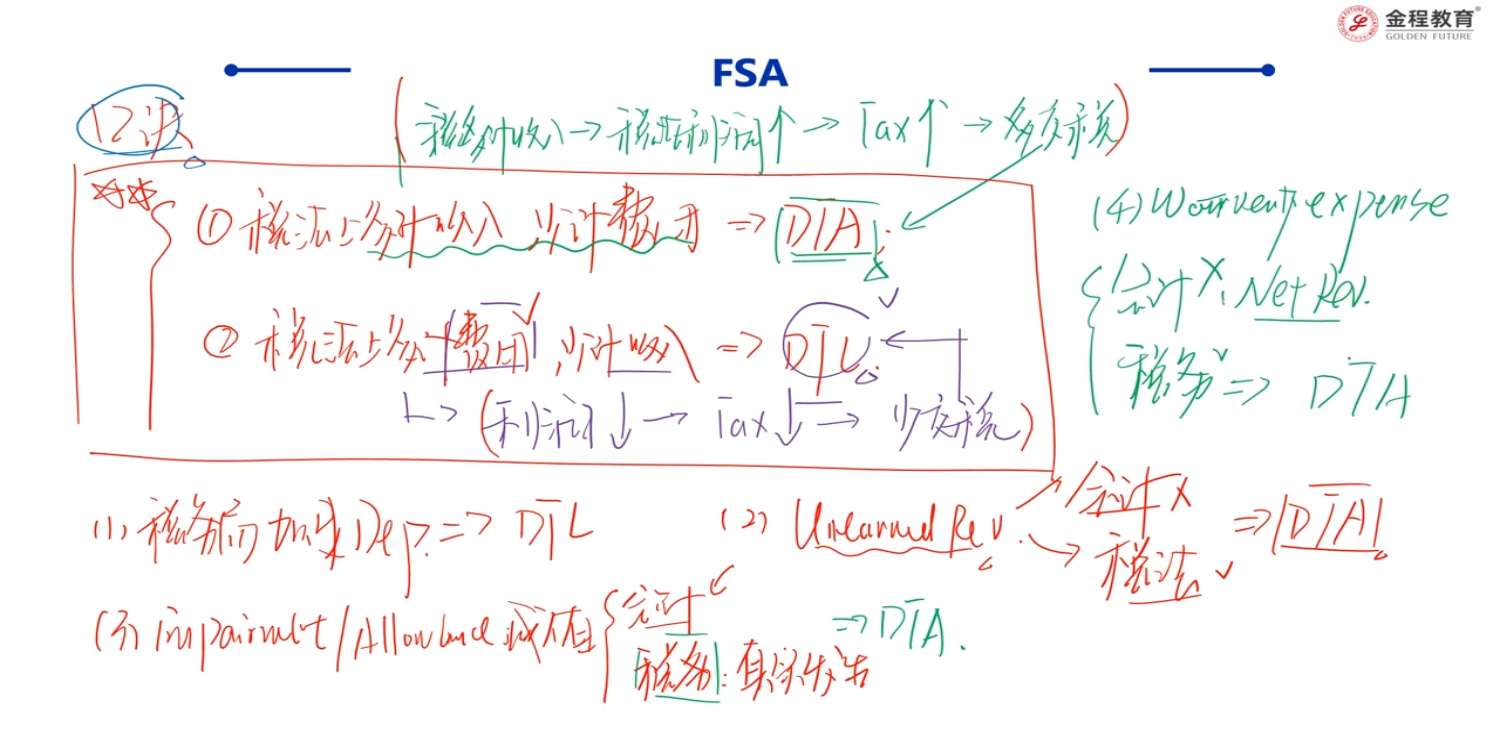 金程教育
GOLDEN FUTURE
FSA
口诀
(税多计收入 → 税法利润↑ → Tax↑ → 多交税)
① 税法上多计收入, 少计费用 => DTA.
② 税法上多计费用, 少计收入 => DTL.
↳ (利润↓ → Tax↓ => 少交税)
(4) Warranty expense
会计 X. Net Rev.
税务 ✓ => DTA
(1) 税务局加速Dep. => DTL
(2) Unearned Rev.
会计 X
税法 ✓
=> DTA
(3) impairment/Allowance 减值
会计 ✓
税务: 真实发生
=> DTA.